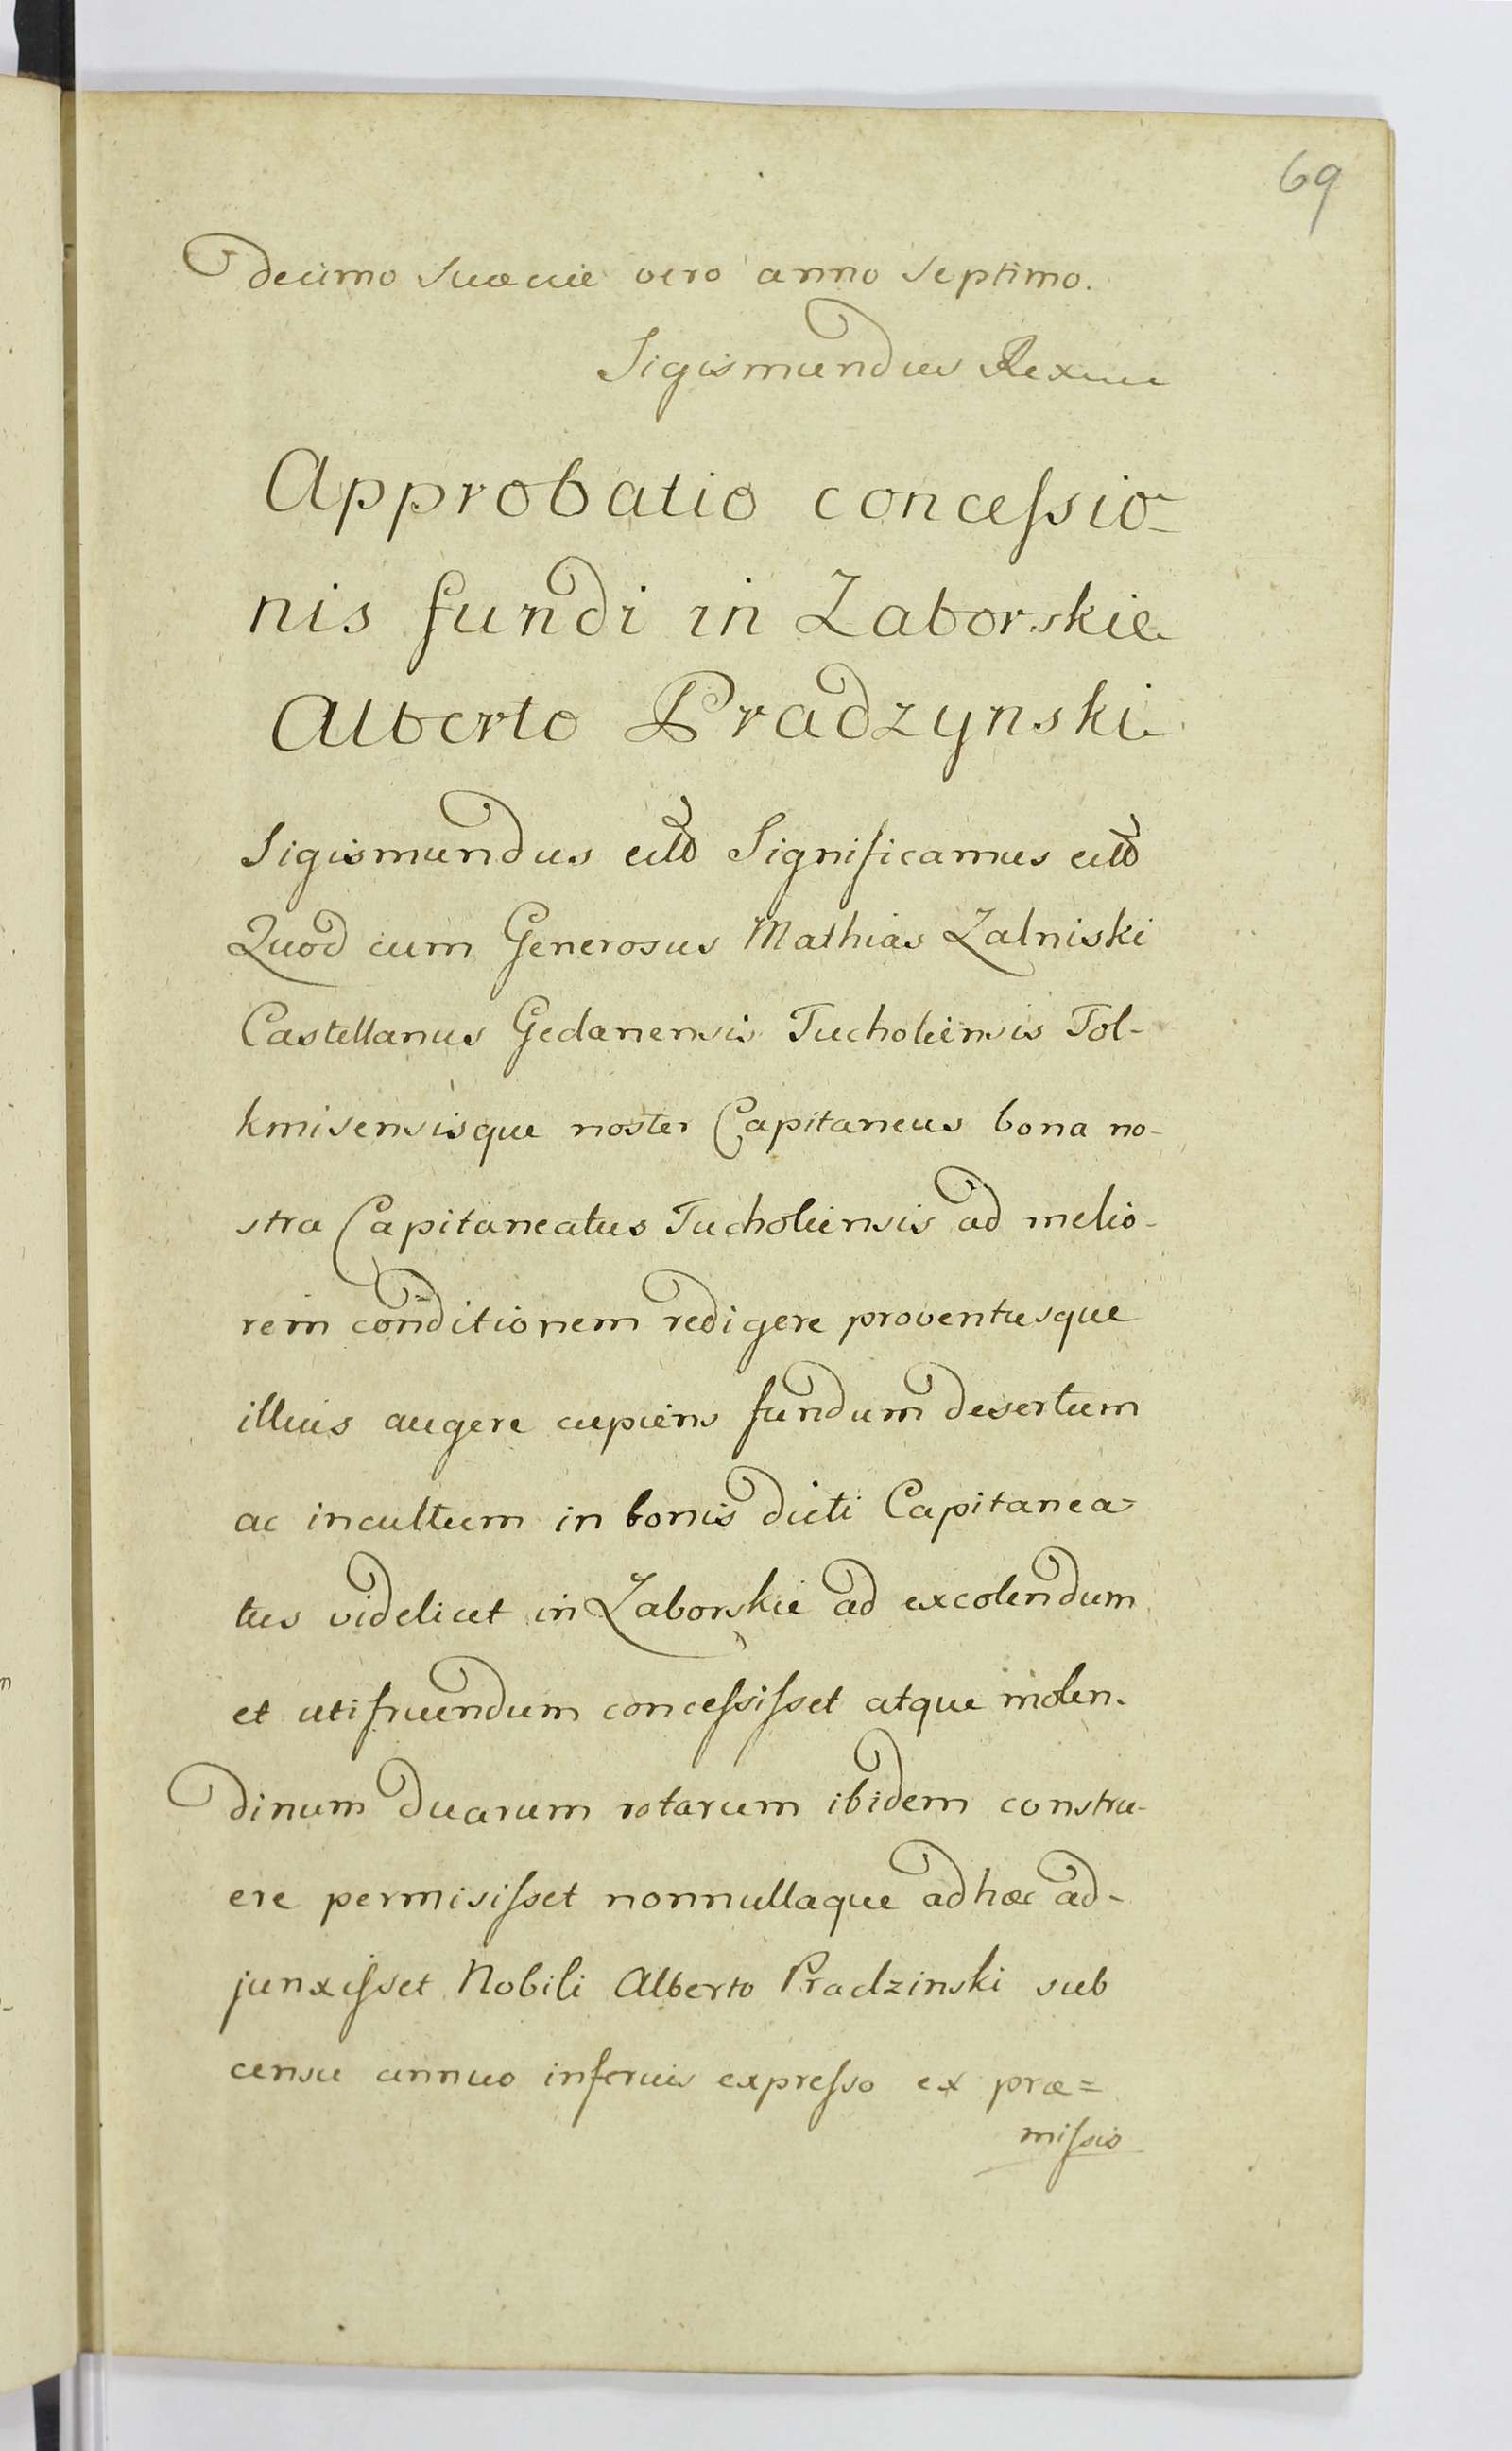 69
decimo Sueciae vero anno Septimo.
Sigismundus Rex
Approbatio concessio-
nis fundi in Zaborskie
Alberto Pradzynski
Sigismundus Significamus
Quod cum Generosus Mathias Zalniski
Castellanus Gedanensis Tucholiensis Tol-
kmisensisque noster Capitaneus bona no-
stra Capitaneatus Tucholiensis ad melio-
rem conditionem redigere proventusque
illius augere cupiens fundum desertum
ac incultum in bonis dicti Capitanea=
tus videlicet in Zaborskie ad excolendum
et utifruendum concessisset atque molen-
dinum duarum rotarum ibidem constru-
ere permisisset nonnullaque ad hæc ad-
junxisset Nobili Alberto Pradzinski sub
censu annuo inferius expresso ex præ=
missis